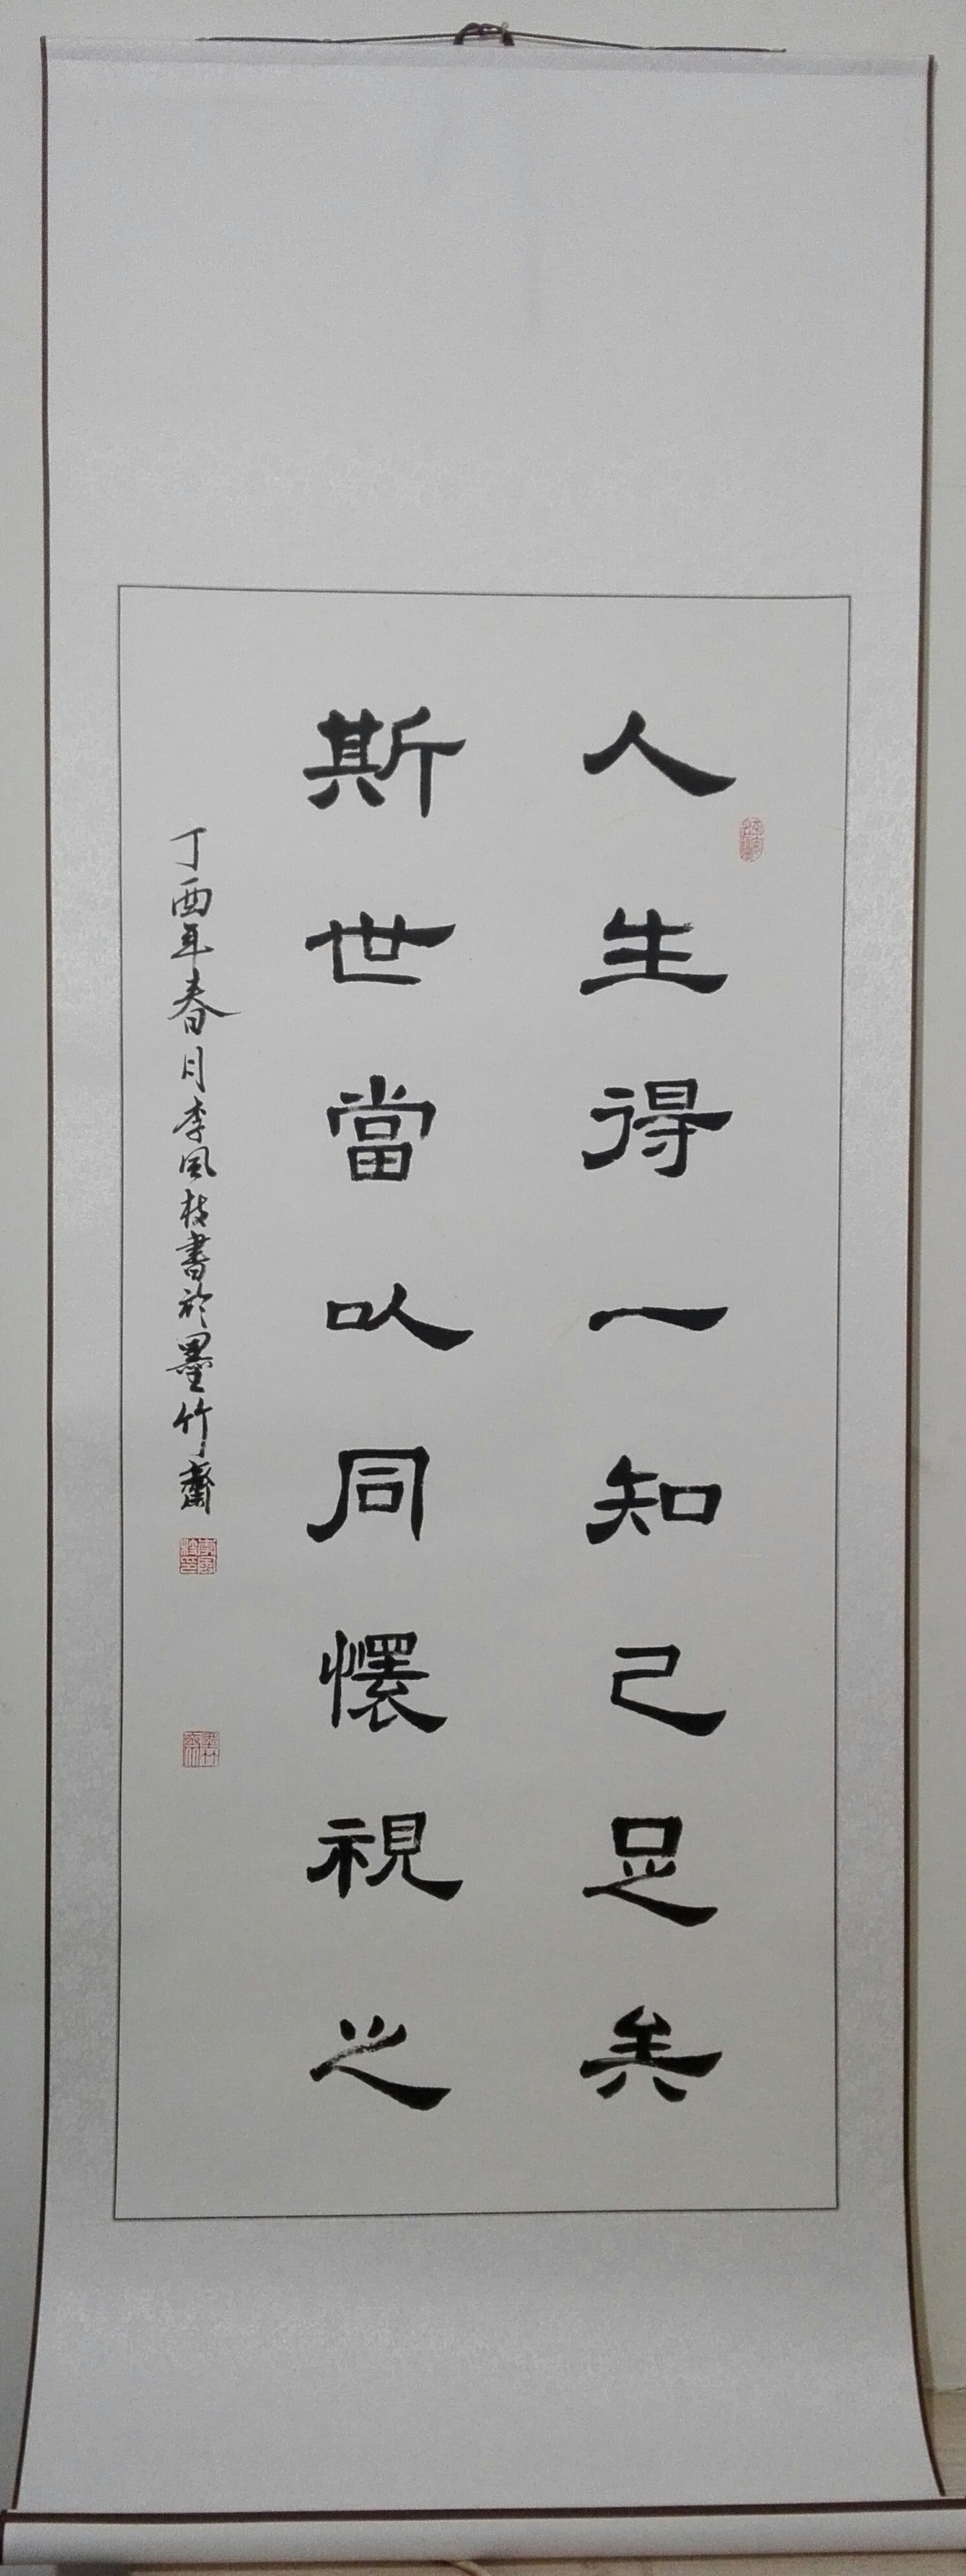 人生得一知己足矣
斯世當以同懷視之
丁酉年春月李風枝書於墨竹齋